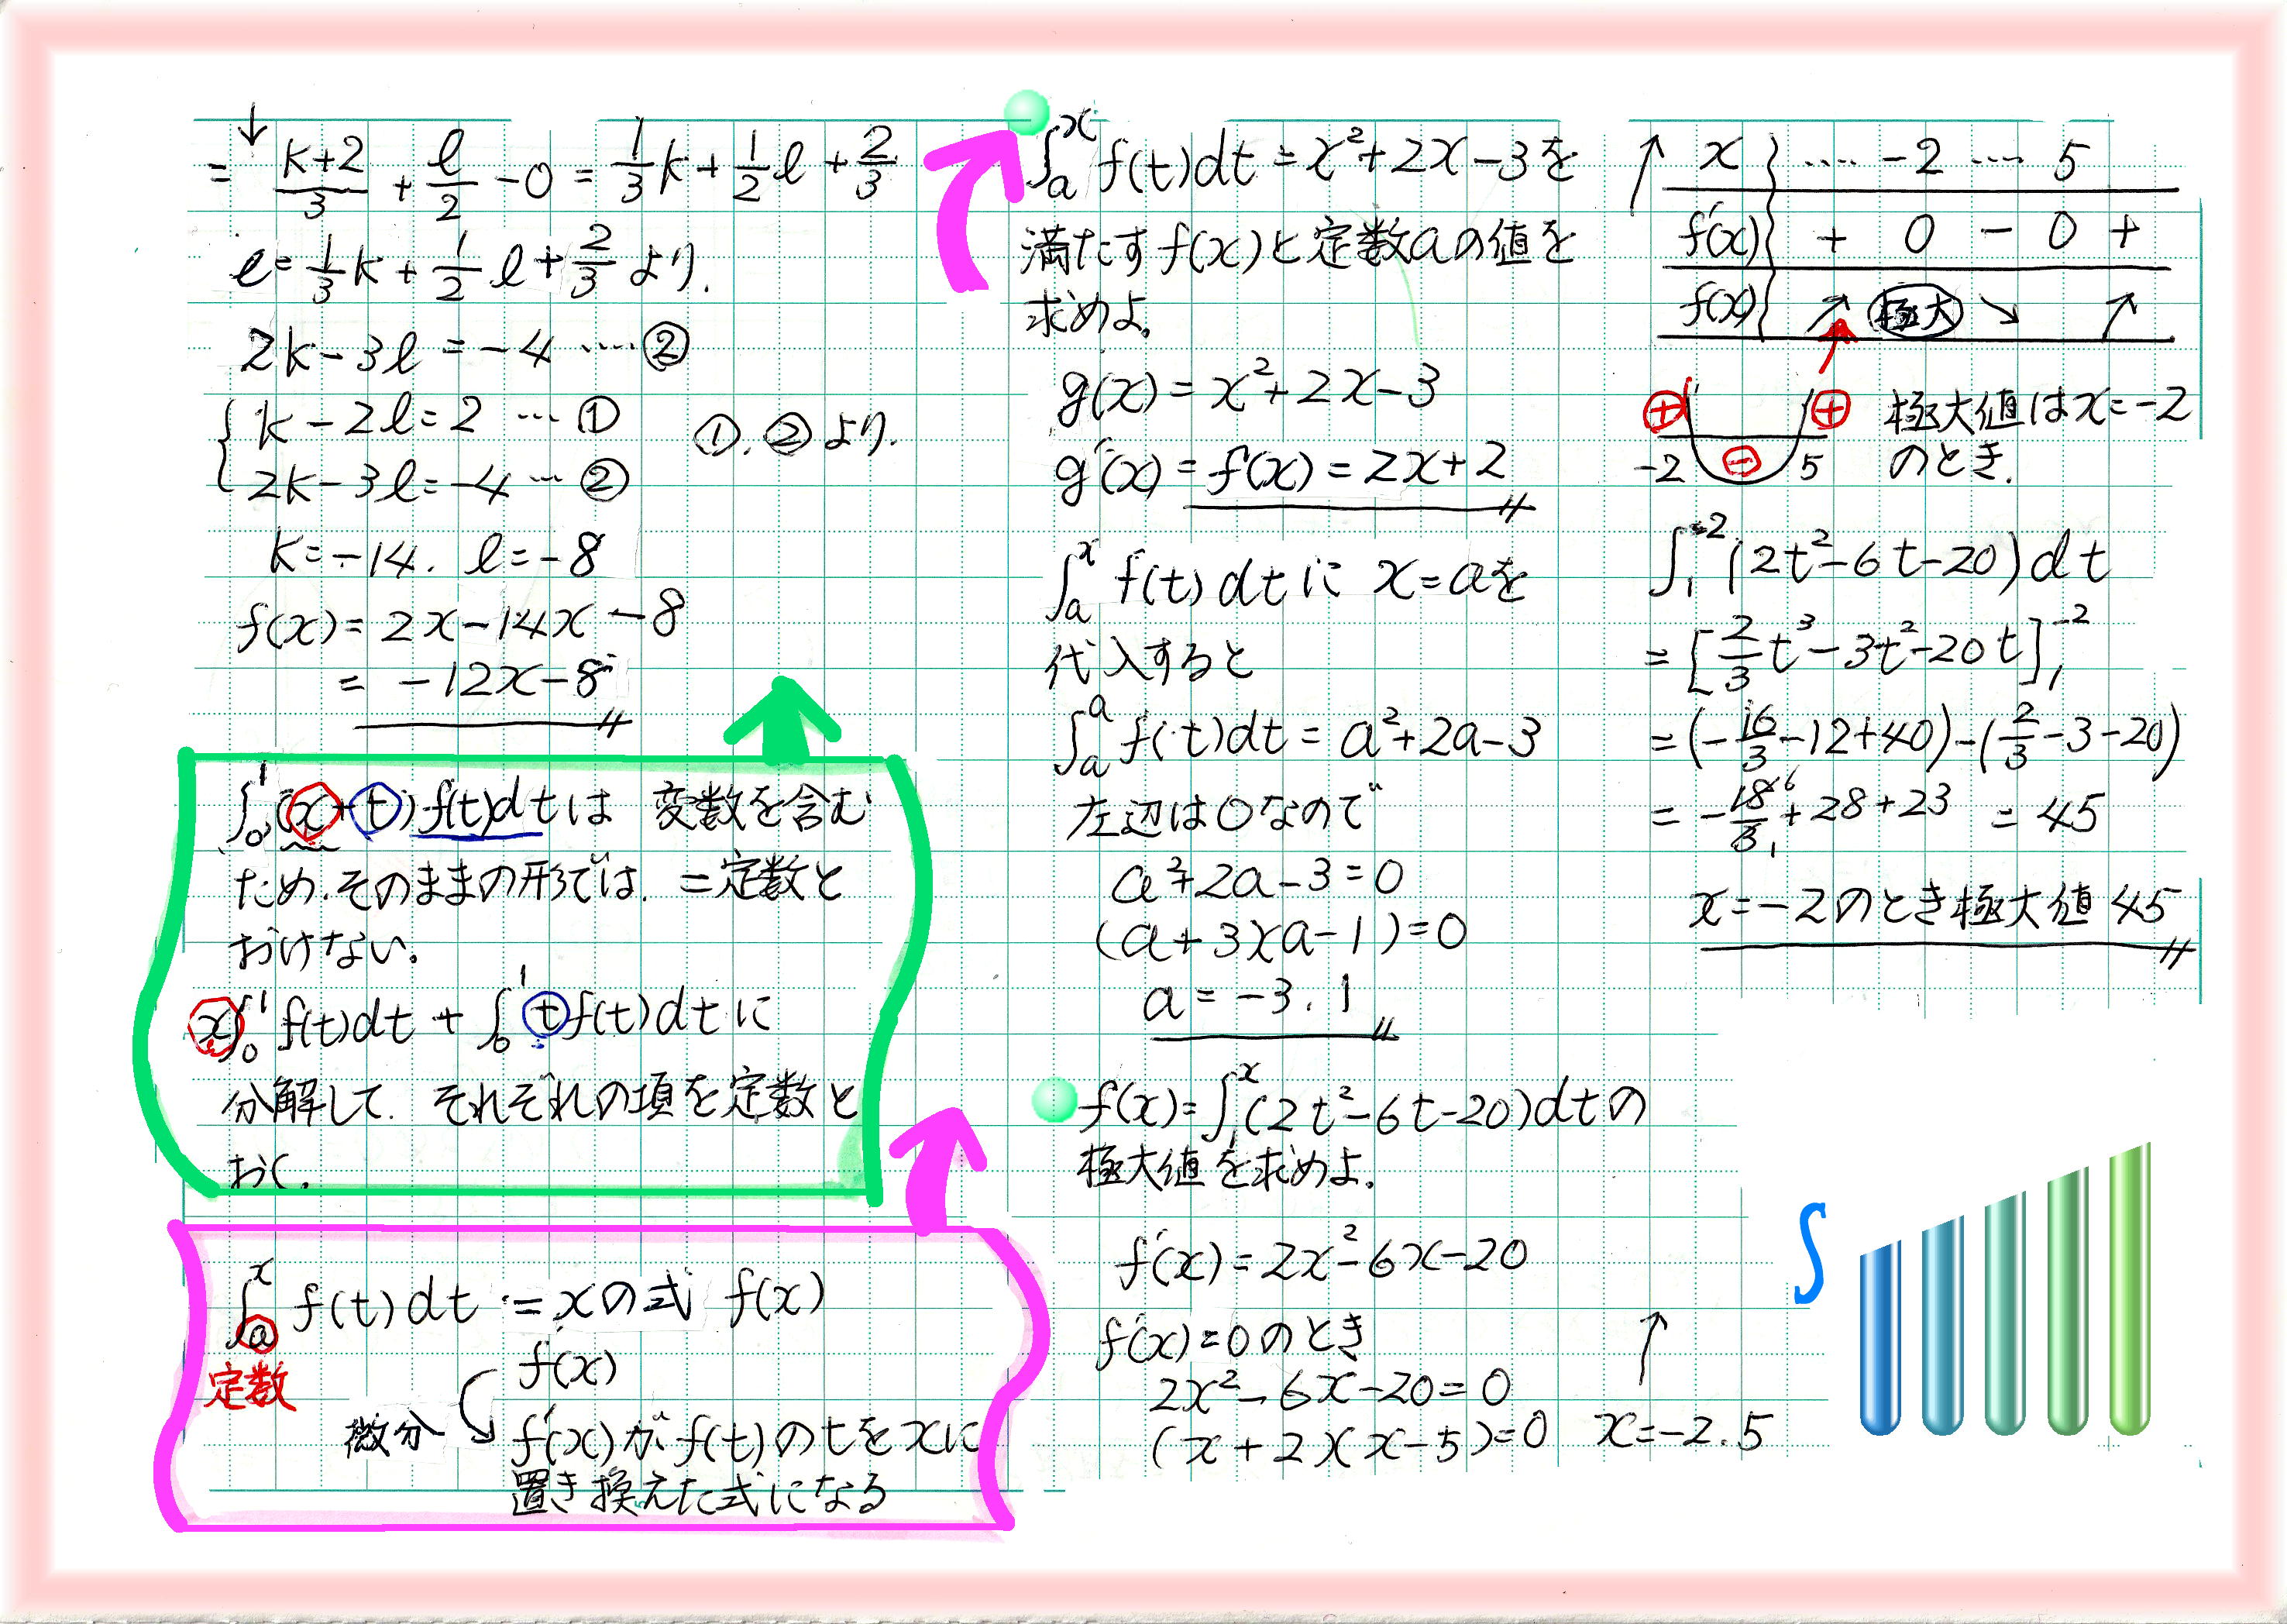 = (k+2)/3 + ℓ/2 - 0 = 1/3 k + 1/2 ℓ + 2/3
ℓ = 1/3 k + 1/2 ℓ + 2/3 より.
2k - 3ℓ = -4 ‥‥ ②
k - 2ℓ = 2 … ①
①. ② より.
2k - 3ℓ = -4 … ②
k = -14. ℓ = -8
f(x) = 2x - 14x - 8
= -12x - 8
∫₀¹ (x+t) f(t)dt は 変数を含む
ため. そのままの形では. =定数と
おけない。
x∫₀¹ f(t)dt + ∫₀¹ t f(t)dt に
分解して. それぞれの項を定数と
おく.
∫ₐˣ f(t)dt = xの式 f(x)
定数
f(x)
微分
f'(x)が f(t)のtをxに
置き換えた式になる
∫ₐˣ f(t)dt = x² + 2x - 3を
満たす f(x)と定数aの値を
求めよ。
g(x) = x² + 2x - 3
g'(x) = f(x) = 2x + 2
∫ₐˣ f(t)dt に x = aを
代入すると
∫ₐᵃ f(t)dt = a² + 2a - 3
左辺は0なので
a² + 2a - 3 = 0
(a + 3)(a - 1) = 0
a = -3. 1
f(x) = ∫₁ˣ (2t² - 6t - 20)dtの
極大値を求めよ.
f'(x) = 2x² - 6x - 20
f'(x) = 0のとき
2x² - 6x - 20 = 0
(x + 2)(x - 5) = 0 x = -2. 5
x ‥‥ -2 ‥‥ 5
f'(x) + 0 - 0 +
f(x) ↗ 極大 ↘ ↗
⊕ ⊕ 極大値はx = -2
-2 ⊖ 5 のとき.
∫₁⁻² (2t² - 6t - 20)dt
= [2/3 t³ - 3t² - 20t]₁⁻²
= (-16/3 - 12 + 40) - (2/3 - 3 - 20)
= -18/3 + 28 + 23 = 45
6
1
x = -2のとき極大値 45
∫